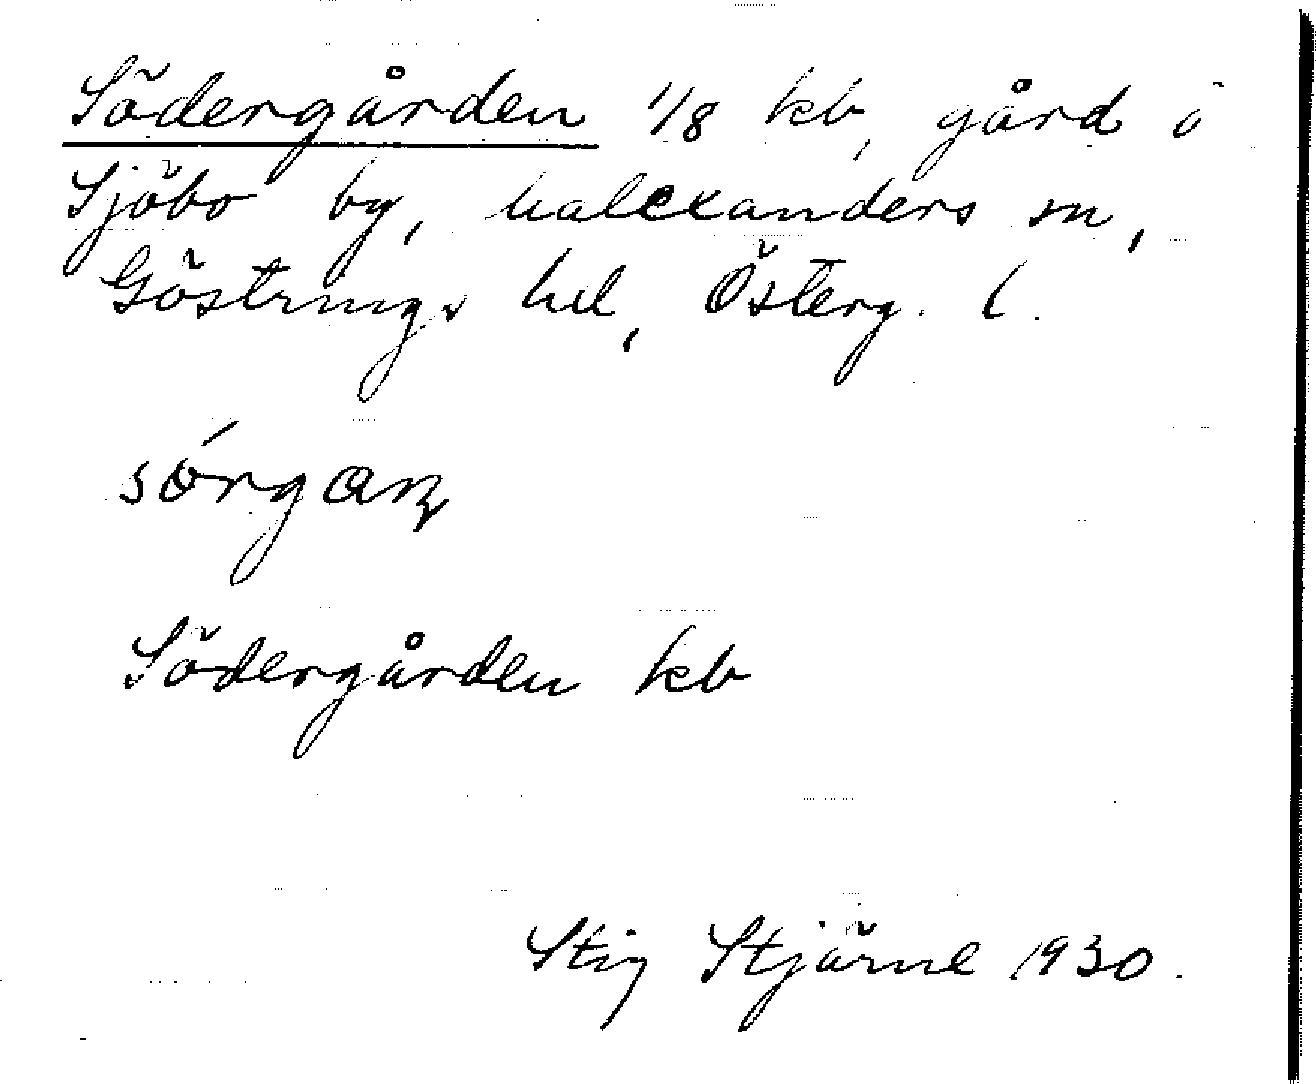 Södergården 1/8 kb, gård i
Sjöbo by, Walexanders sn,
Göstrings hd, Österg. l.
sórgaɳ
Södergården kb
Stig Stjärne 1930.